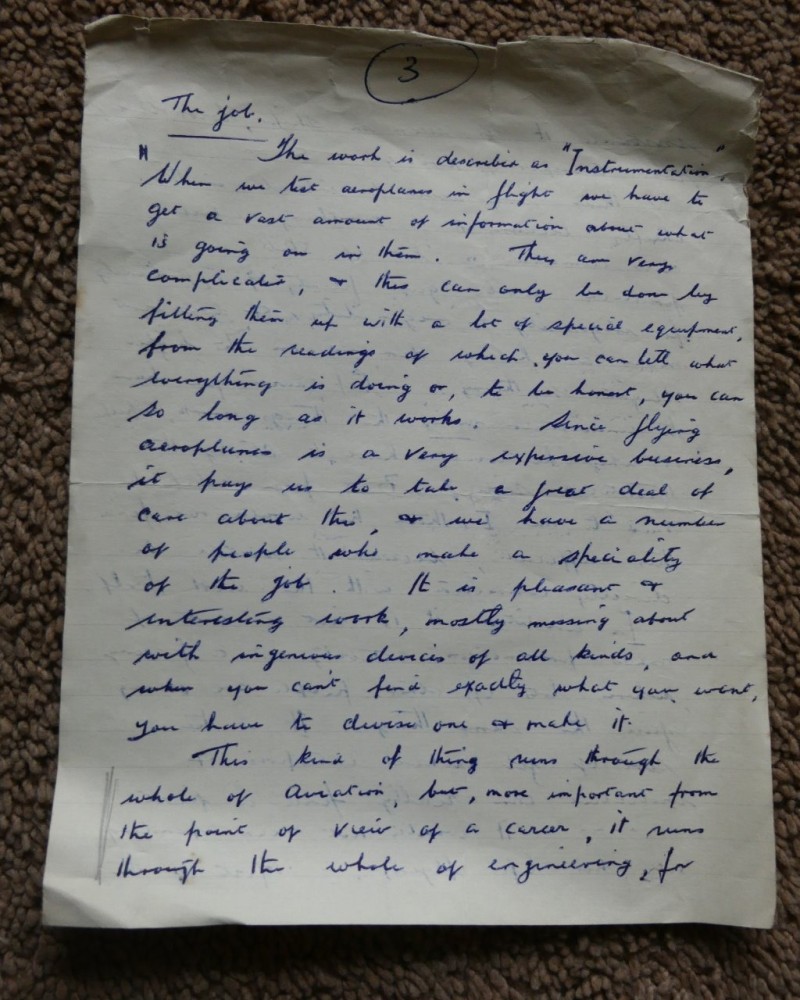 3
The job.
" The work is described as "Instrumentation".
When we test aeroplanes in flight we have to
get a vast amount of information about what
is going on in them. They are very
complicated, & this can only be done by
filling them up with a lot of special equipment,
from the readings of which you can tell what
everything is doing or, to be honest, you can
so long as it works. Since flying
aeroplanes is a very expensive business,
it pays us to take a great deal of
care about this, & we have a number
of people who make a speciality
of the job. It is pleasant &
interesting work, mostly messing about
with ingenious devices of all kinds, and
when you can't find exactly what you want,
you have to devise one & make it.
This kind of thing runs through the
whole of Aviation, but, more important from
the point of view of a career, it runs
through the whole of engineering, for